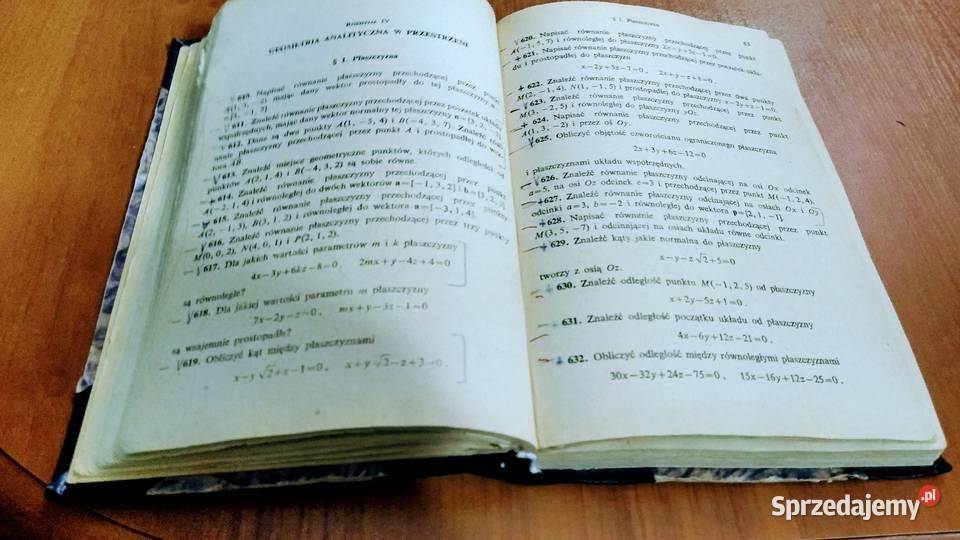 Rozdział IV
GEOMETRIA ANALITYCZNA W PRZESTRZENI
§ 1. Płaszczyzna
610. Napisać równanie płaszczyzny przechodzącej przez punkt
A(1, 3, −2) mając dany wektor prostopadły do tej płaszczyzny
611. Znaleźć równanie płaszczyzny przechodzącej przez początek układu
współrzędnych, mając dany wektor normalny tej płaszczyzny
612. Dane są dwa punkty A(1, −3, 4) i B(−4, 3, 7). Znaleźć równanie
płaszczyzny przechodzącej przez punkt A i prostopadłej do wektora
AB.
613. Znaleźć miejsce geometryczne punktów, których odległości od
punktów A(2, 1, 4) i B(−4, 3, 2) są sobie równe.
614. Znaleźć równanie płaszczyzny przechodzącej przez punkt
i równoległej do dwóch wektorów a=[−1, 3, 2] i
615. Znaleźć równanie płaszczyzny przechodzącej przez punkty
A(2, −1, 3), B(3, 1, 2) i równoległej do wektora a=[−3, 1, 4].
616. Znaleźć równanie płaszczyzny przechodzącej przez trzy punkty
M(0, 0, 2), N(4, 0, 1) i P(2, 1, 2).
617. Dla jakich wartości parametrów m i k płaszczyzny
4x−3y+6kz−8=0, 2mx+y−4z+4=0
są równoległe?
618. Dla jakiej wartości parametru m płaszczyzny
7x−2y−z=0, mx+y−3z−1=0
są wzajemnie prostopadłe?
619. Obliczyć kąt między płaszczyznami
x−y√2+z−1=0, x+y√2−z+3=0.
§ 1. Płaszczyzna
63
620. Napisać równanie płaszczyzny przechodzącej przez punkt
A(−1, 5, 7) i równoległej do płaszczyzny
621. Napisać równanie płaszczyzny przechodzącej przez początek układu
i prostopadłej do płaszczyzn
x−2y+5z−7=0, 2x+y−z+3=0.
622. Znaleźć równanie płaszczyzny przechodzącej przez dwa punkty
M(2, −1, 4), N(1, −1, 5) i prostopadłej do płaszczyzny x−2y+z−1=0.
623. Znaleźć równanie płaszczyzny przechodzącej przez punkt
M(3, −2, 5) i równoległej do płaszczyzny yOz.
624. Znaleźć równanie płaszczyzny przechodzącej przez punkt
A(1, 3, −2) i przez oś Oy.
625. Obliczyć objętość czworościanu ograniczonego płaszczyzną
2x+3y+6z−12=0
i płaszczyznami układu współrzędnych.
626. Znaleźć równanie płaszczyzny odcinającej na osi Ox odcinek
a=5, na osi Oz odcinek c=3 i przechodzącej przez punkt M(−1, 2, 4).
627. Znaleźć równanie płaszczyzny odcinającej na osiach Ox i Oy
odcinki a=3, b=−2 i równoległej do wektora p=[2, 1, −1].
628. Napisać równanie płaszczyzny przechodzącej przez punkt
M(3, 5, −7) i odcinającej na osiach układu równe odcinki.
629. Znaleźć kąty jakie normalna do płaszczyzny
x−y−z√2+5=0
tworzy z osią Oz.
630. Znaleźć odległość punktu M(−1, 2, 5) od płaszczyzny
x+2y−5z+1=0.
631. Znaleźć odległość początku układu od płaszczyzny
4x−6y+12z−21=0.
632. Obliczyć odległość między równoległymi płaszczyznami
30x−32y+24z−75=0, 15x−16y+12z−25=0.
Sprzedajemy.pl